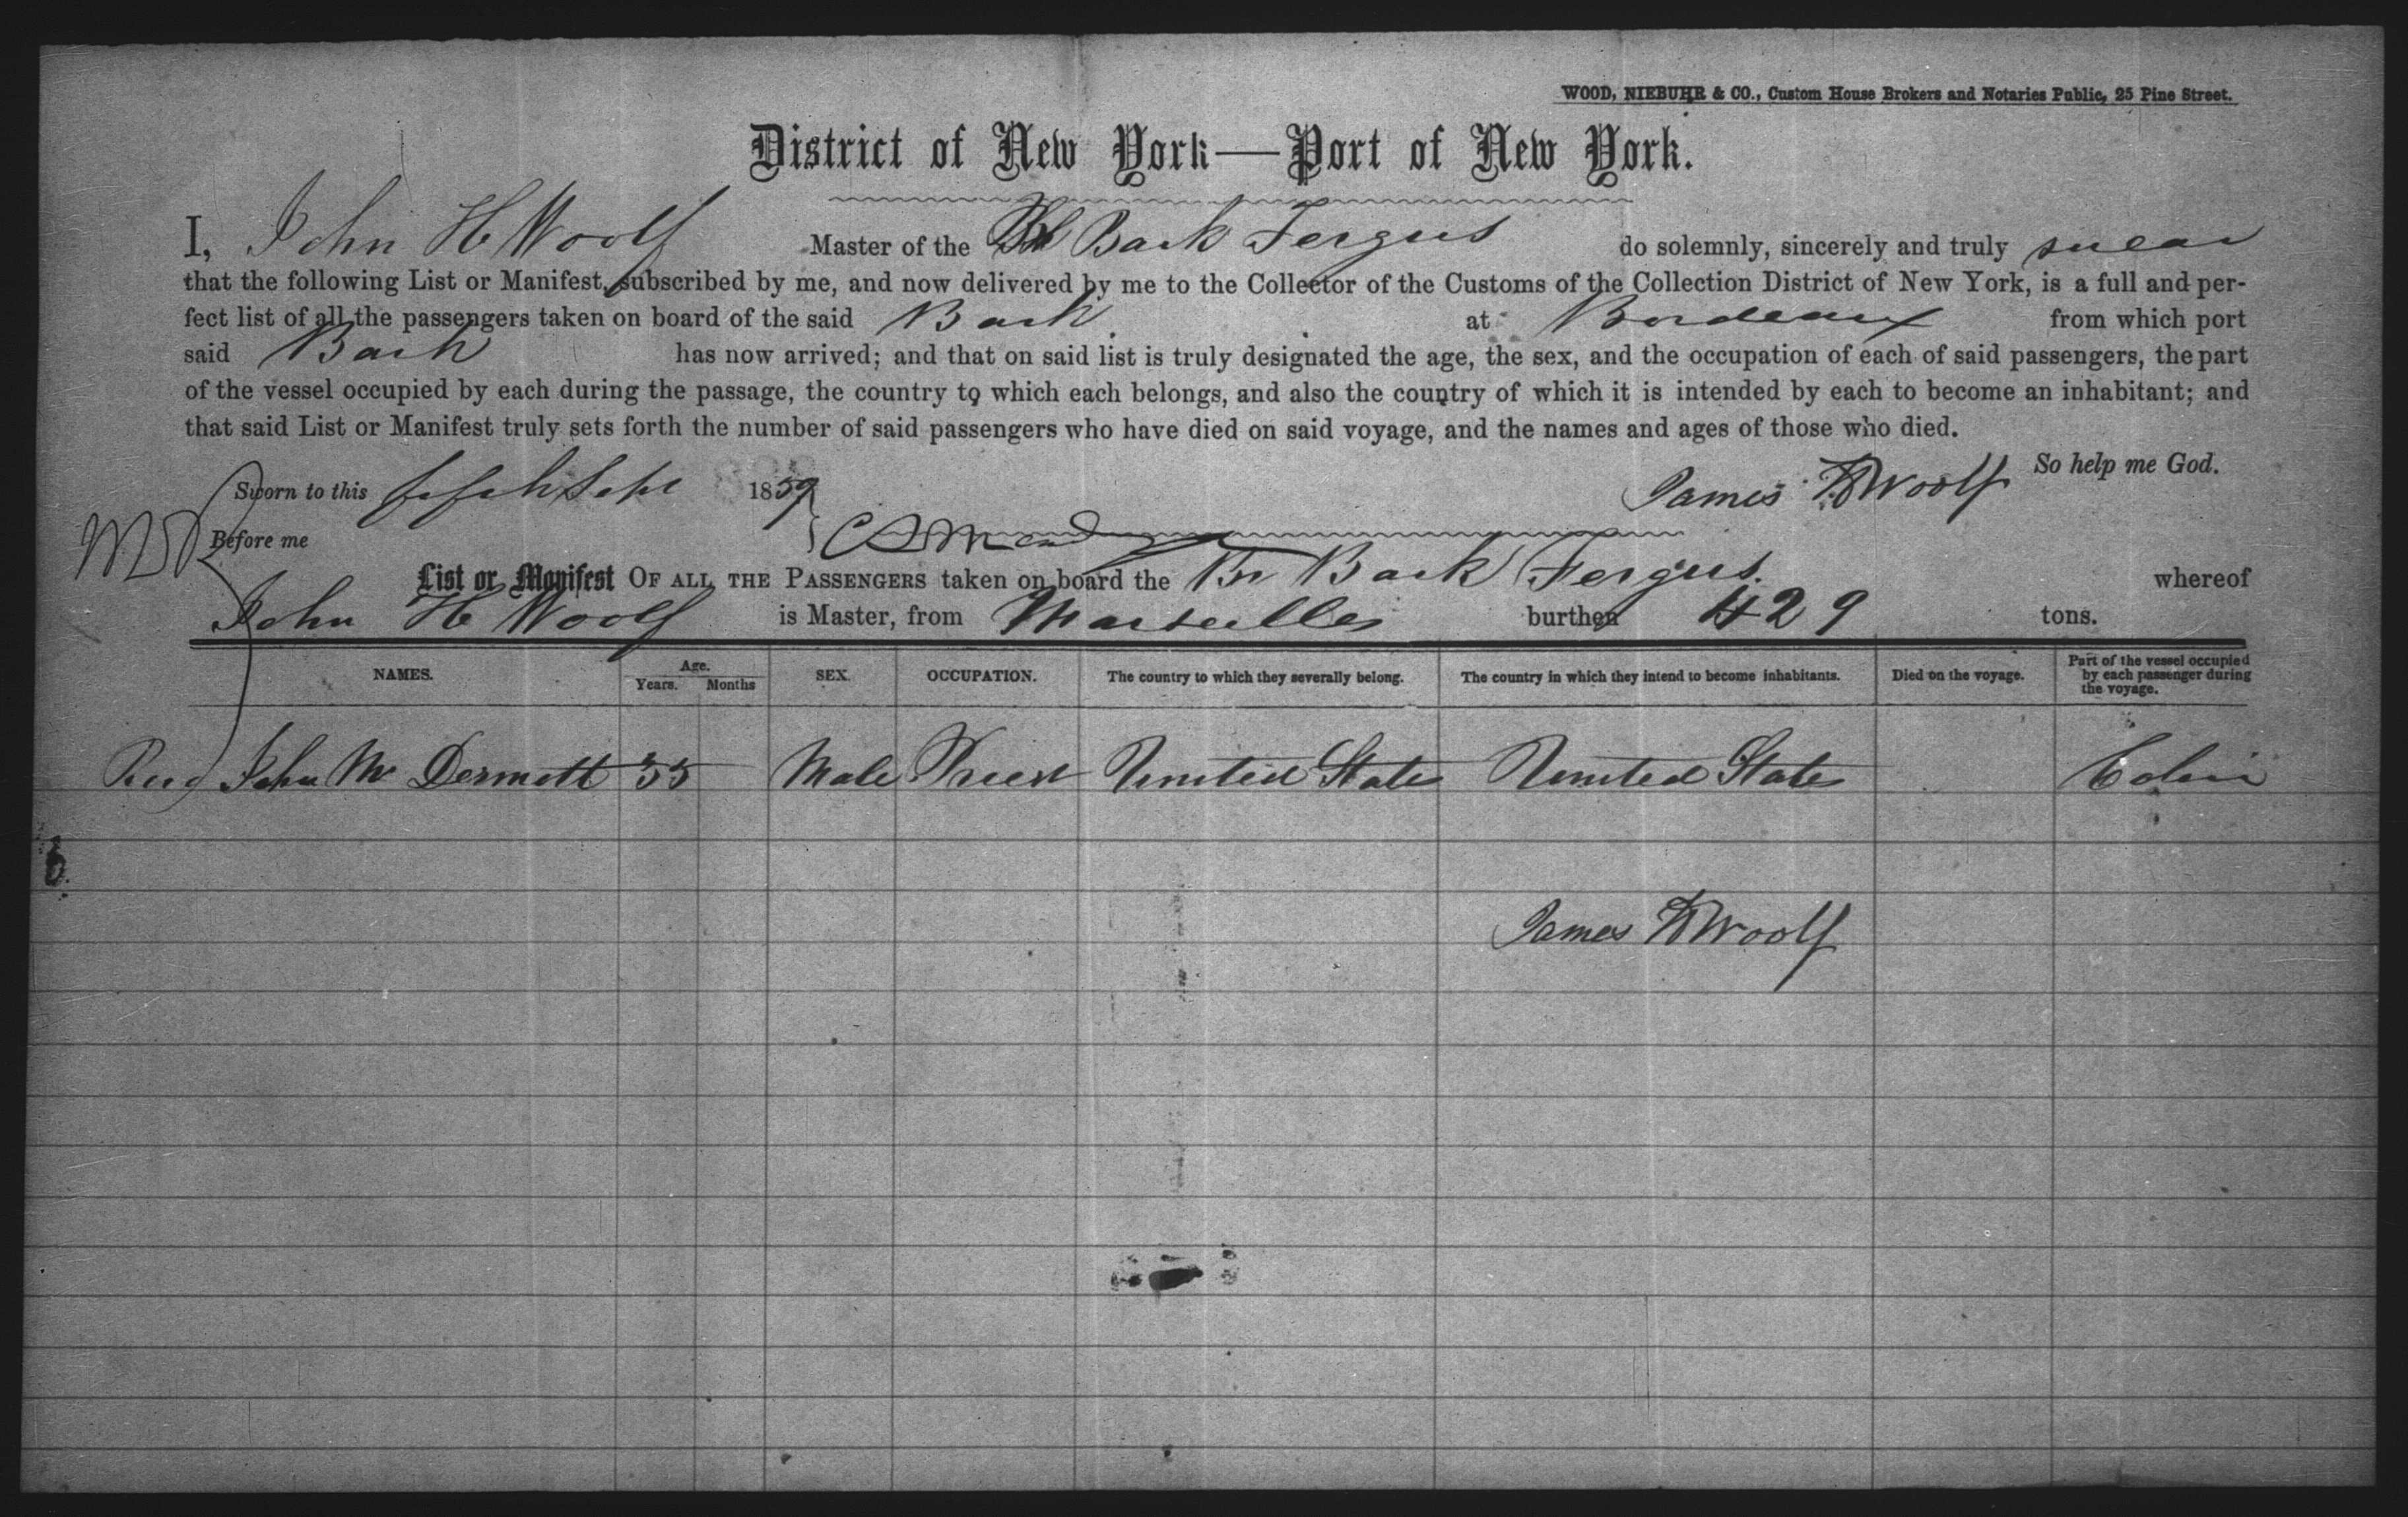 WOOD, NIEBUHR & CO., Custom House Brokers and Notaries Public, 25 Pine Street.
District of New York—Port of New York.
I, John H Woolf Master of the Bark Fergus do solemnly, sincerely and truly swear
that the following List or Manifest, subscribed by me, and now delivered by me to the Collector of the Customs of the Collection District of New York, is a full and per-
fect list of all the passengers taken on board of the said Bark at Bordeaux from which port
said Bark has now arrived; and that on said list is truly designated the age, the sex, and the occupation of each of said passengers, the part
of the vessel occupied by each during the passage, the country to which each belongs, and also the country of which it is intended by each to become an inhabitant; and
that said List or Manifest truly sets forth the number of said passengers who have died on said voyage, and the names and ages of those who died.
So help me God.
Sworn to this fifth Sept 1859 James H Woolf
Before me
List or Manifest OF ALL THE PASSENGERS taken on board the Br Bark Fergus. whereof
John H Woolf is Master, from Marseilles burthen 429 tons.
NAMES. Age. Years. Months SEX. OCCUPATION. The country to which they severally belong. The country in which they intend to become inhabitants. Died on the voyage. Part of the vessel occupied by each passenger during the voyage.
John Mc Dermott Male Priest United States United States Cabin
James H Woolf